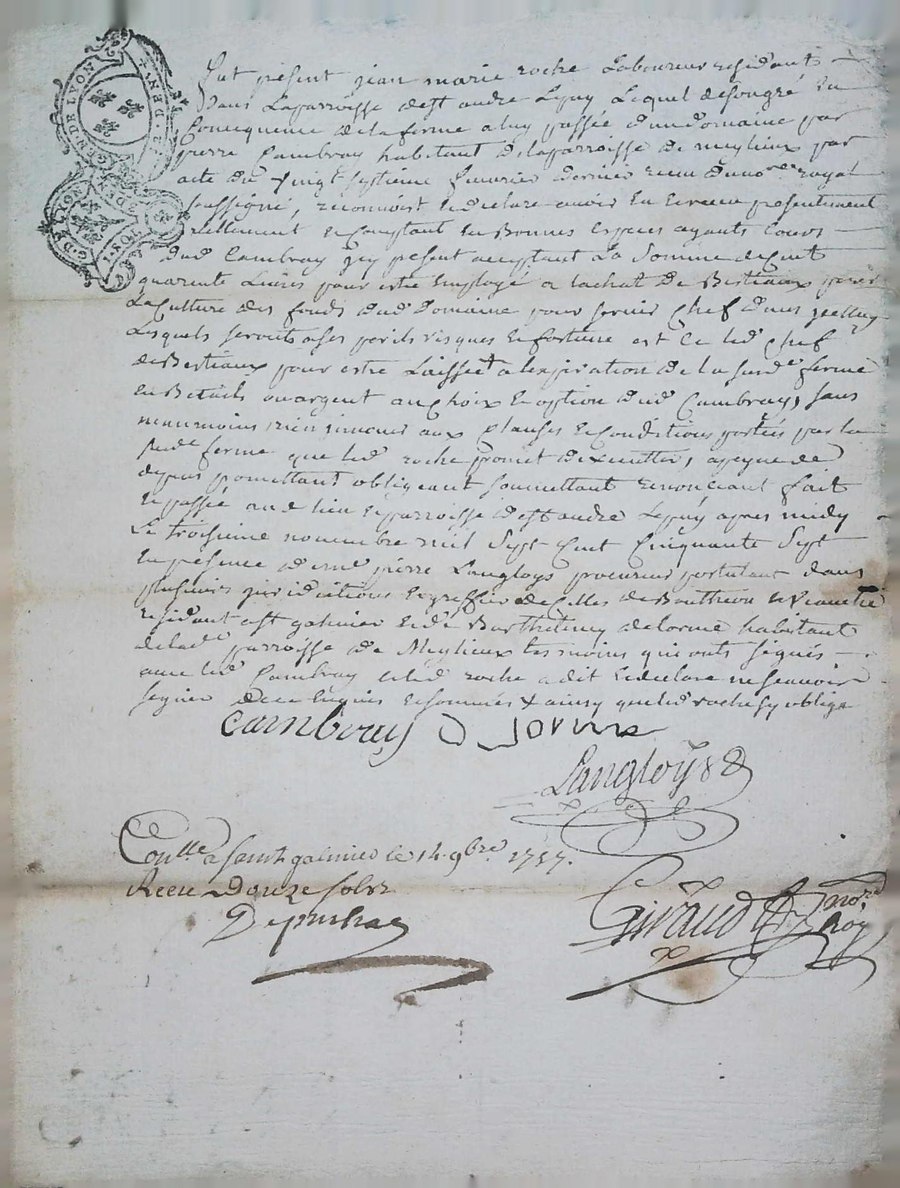 GEN DE LYON
DENI
G. D. LYON
1. SOL
Fut présent jean marie roche Laboureur residant
dans Laparroisse de st andre Lepuy Lequel de son gré en
Consequence de la ferme a luy passée d'un domaine par
pierre Cambray habitant de laparroisse de meylieux par
acte du vingt septième feuvrier dernier receu du nore royal
soussigné, reconnoist et declare avoir eu et receu presentement
reellement et Comptant en Bonnes Especes ayants Cours
dud Cambray icy pesent acceptant La Somme de Cent
quarente Livres pour estre Employé a lachat de Bestiaux pour
La Culture des fonds dud Domaine pour servir Chef
Lesquels seronts a ses perils risques et fortune est Ce led Chef
de Bestiaux pour estre Laissé a lexpiration de la susde ferme
en Betails ou argent au choix et option dud Cambray, sans
neanmoins rien innover aux Clauses et Conditions portées par la
susde ferme que led roche promet dexecutter, apeyne de
depens promettant obligeant soumettant renonçant fait
et passé aud lieu et parroisse de st andre Lepuy apres midy
Le troisieme novembre mil Sept Cent Cinquante Sept
en presence de me pierre Langloys procureur postulant dans
plusieurs juridictions et greffier de Celles de Boutheon et Veauche
residant a st galmier et de Barthelemy delorme habitant
de lade parroisse de Meylieux temoins qui onts signés
avec led Cambray et led roche a dit et declare ne scavoir
signer de ce enquis et sommés & ainsy que led roche sy oblige
Cambray D Lorme
Langloys
Conlle a saint galmier le 14. 9bre. 1757.
Receu Douze sols
Giraud nore roy